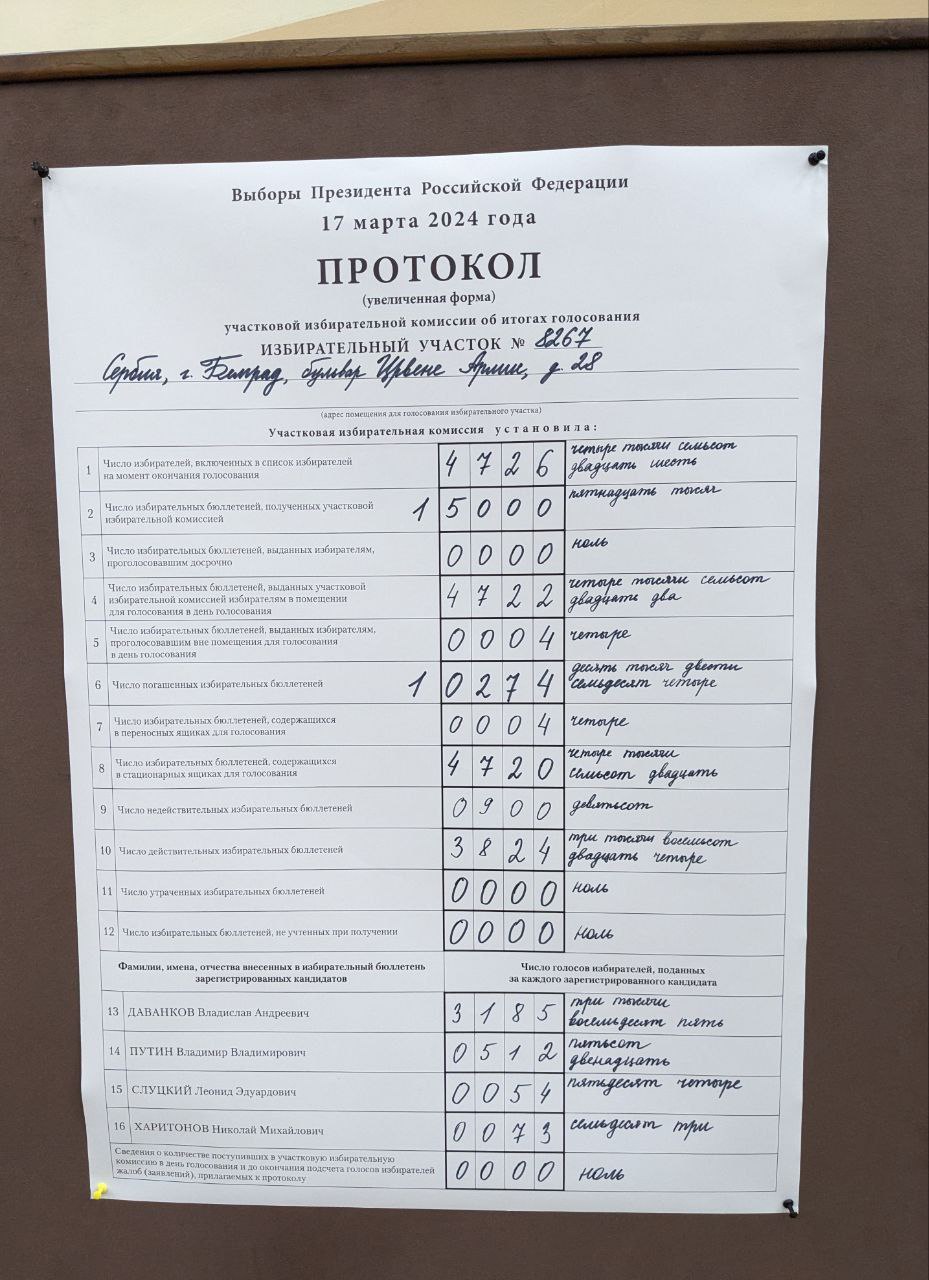 Выборы Президента Российской Федерации
17 марта 2024 года
ПРОТОКОЛ
(увеличенная форма)
участковой избирательной комиссии об итогах голосования
ИЗБИРАТЕЛЬНЫЙ УЧАСТОК № 8267
Сербия, г. Белград, булевар Црвене Армие, д. 28
(адрес помещения для голосования избирательного участка)
Участковая избирательная комиссия установила:
1 Число избирателей, включенных в список избирателей
на момент окончания голосования 4 7 2 6 четыре тысячи семьсот
двадцать шесть
2 Число избирательных бюллетеней, полученных участковой
избирательной комиссией 1 5 0 0 0 пятнадцать тысяч
3 Число избирательных бюллетеней, выданных избирателям,
проголосовавшим досрочно 0 0 0 0 ноль
4 Число избирательных бюллетеней, выданных участковой
избирательной комиссией избирателям в помещении
для голосования в день голосования 4 7 2 2 четыре тысячи семьсот
двадцать два
5 Число избирательных бюллетеней, выданных избирателям,
проголосовавшим вне помещения для голосования
в день голосования 0 0 0 4 четыре
6 Число погашенных избирательных бюллетеней 1 0 2 7 4 десять тысяч двести
семьдесят четыре
7 Число избирательных бюллетеней, содержащихся
в переносных ящиках для голосования 0 0 0 4 четыре
8 Число избирательных бюллетеней, содержащихся
в стационарных ящиках для голосования 4 7 2 0 четыре тысячи
семьсот двадцать
9 Число недействительных избирательных бюллетеней 0 9 0 0 девятьсот
10 Число действительных избирательных бюллетеней 3 8 2 4 три тысячи восемьсот
двадцать четыре
11 Число утраченных избирательных бюллетеней 0 0 0 0 ноль
12 Число избирательных бюллетеней, не учтенных при получении 0 0 0 0 ноль
Фамилии, имена, отчества внесенных в избирательный бюллетень
зарегистрированных кандидатов
Число голосов избирателей, поданных
за каждого зарегистрированного кандидата
13 ДАВАНКОВ Владислав Андреевич 3 1 8 5 три тысячи
восемьдесят пять
14 ПУТИН Владимир Владимирович 0 5 1 2 пятьсот
двенадцать
15 СЛУЦКИЙ Леонид Эдуардович 0 0 5 4 пятьдесят четыре
16 ХАРИТОНОВ Николай Михайлович 0 0 7 3 семьдесят три
Сведения о количестве поступивших в участковую избирательную
комиссию в день голосования и до окончания подсчета голосов избирателей
жалоб (заявлений), прилагаемых к протоколу 0 0 0 0 ноль